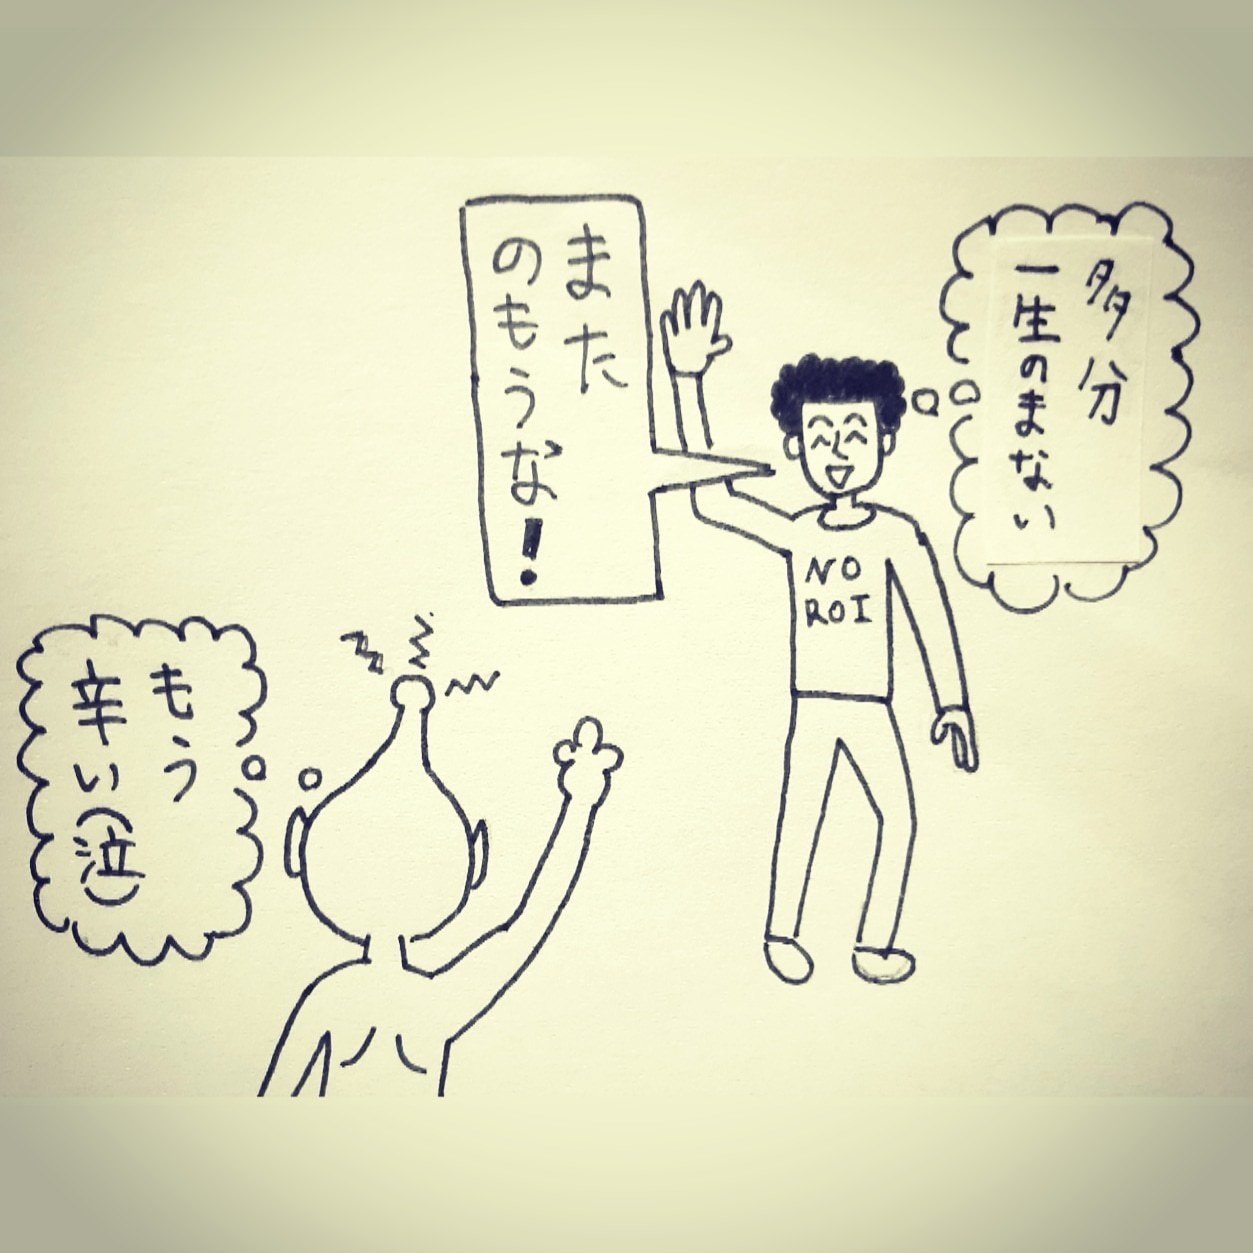 多分
一生のまない
また
のもうな！
NO
ROI
もう
辛い(泣)